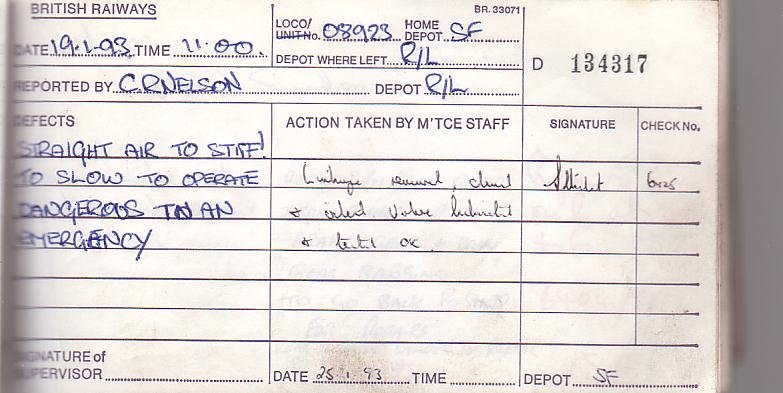 BRITISH RAIWAYS
BR. 33071
LOCO/ UNIT No. 08923 HOME DEPOT SF
DATE 19.1.93 TIME 11.00.
DEPOT WHERE LEFT R/L
D 134317
REPORTED BY C.P.NELSON DEPOT R/L
DEFECTS ACTION TAKEN BY M'TCE STAFF SIGNATURE CHECK No.
STRAIGHT AIR TO STIFF!
TO SLOW TO OPERATE Linkage removed, cleaned
DANGEROUS IN AN & valve lubricated
EMERGENCY & tested OK
SIGNATURE of SUPERVISOR DATE 25.1.93 TIME DEPOT SF